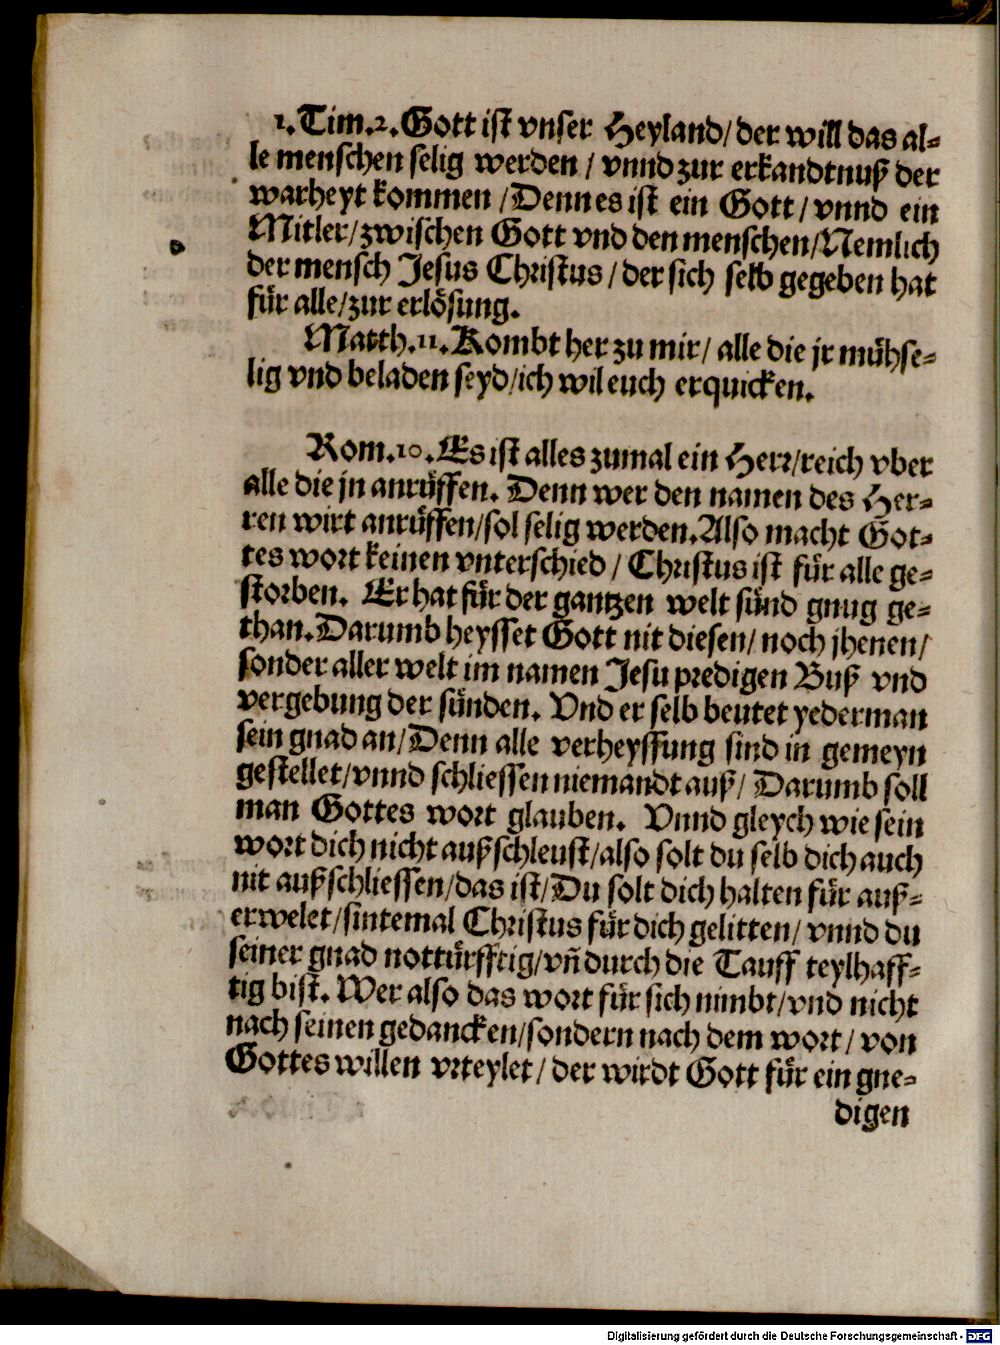 1. Tim. 2. Gott ist vnser Heyland/ der will das al-
le menschen selig werden / vnnd zur erkandtnuß der
warheyt kommen / Denn es ist ein Gott / vnnd ein
Mitler/ zwischen Gott vnd den menschen/ Nemlich
der mensch Jesus Christus / der sich selb gegeben hat
fuͤr alle/ zur erloͤsung.
Matth. 11. Kombt her zu mir/ alle die jr muͤhse-
lig vnd beladen seyd/ ich wil euch erquicken.
Rom. 10. Es ist alles zumal ein Herr/ reich vber
alle die jn anruͤffen. Denn wer den namen des Her-
ren wirt anruͤffen/ sol selig werden. Also macht Got-
tes wort keinen vnterschied / Christus ist fuͤr alle ge-
storben. Er hat fuͤr der gantzen welt suͤnd gnug ge-
than. Darumb heysset Gott nit diesen/ noch jhenen/
sonder aller welt im namen Jesu predigen Buß vnd
vergebung der suͤnden. Vnd er selb beutet yederman
sein gnad an/ Denn alle verheyssung sind in gemeyn
gestellet/ vnnd schliessen niemandt auß/ Darumb soll
man Gottes wort glauben. Vnnd gleych wie sein
wort dich nicht außschleust/ also solt du selb dich auch
nit außschliessen/ das ist/ Du solt dich halten fuͤr auß-
erwelet/ sintemal Christus fuͤr dich gelitten/ vnnd du
seiner gnad nottuͤrfftig/ vñ durch die Tauff teylhaff-
tig bist. Wer also das wort fuͤr sich nimbt/ vnd nicht
nach seinen gedancken/ sondern nach dem wort / von
Gottes willen vrteylet / der wirdt Gott fuͤr ein gne-
digen
Digitalisierung gefördert durch die Deutsche Forschungsgemeinschaft - DFG